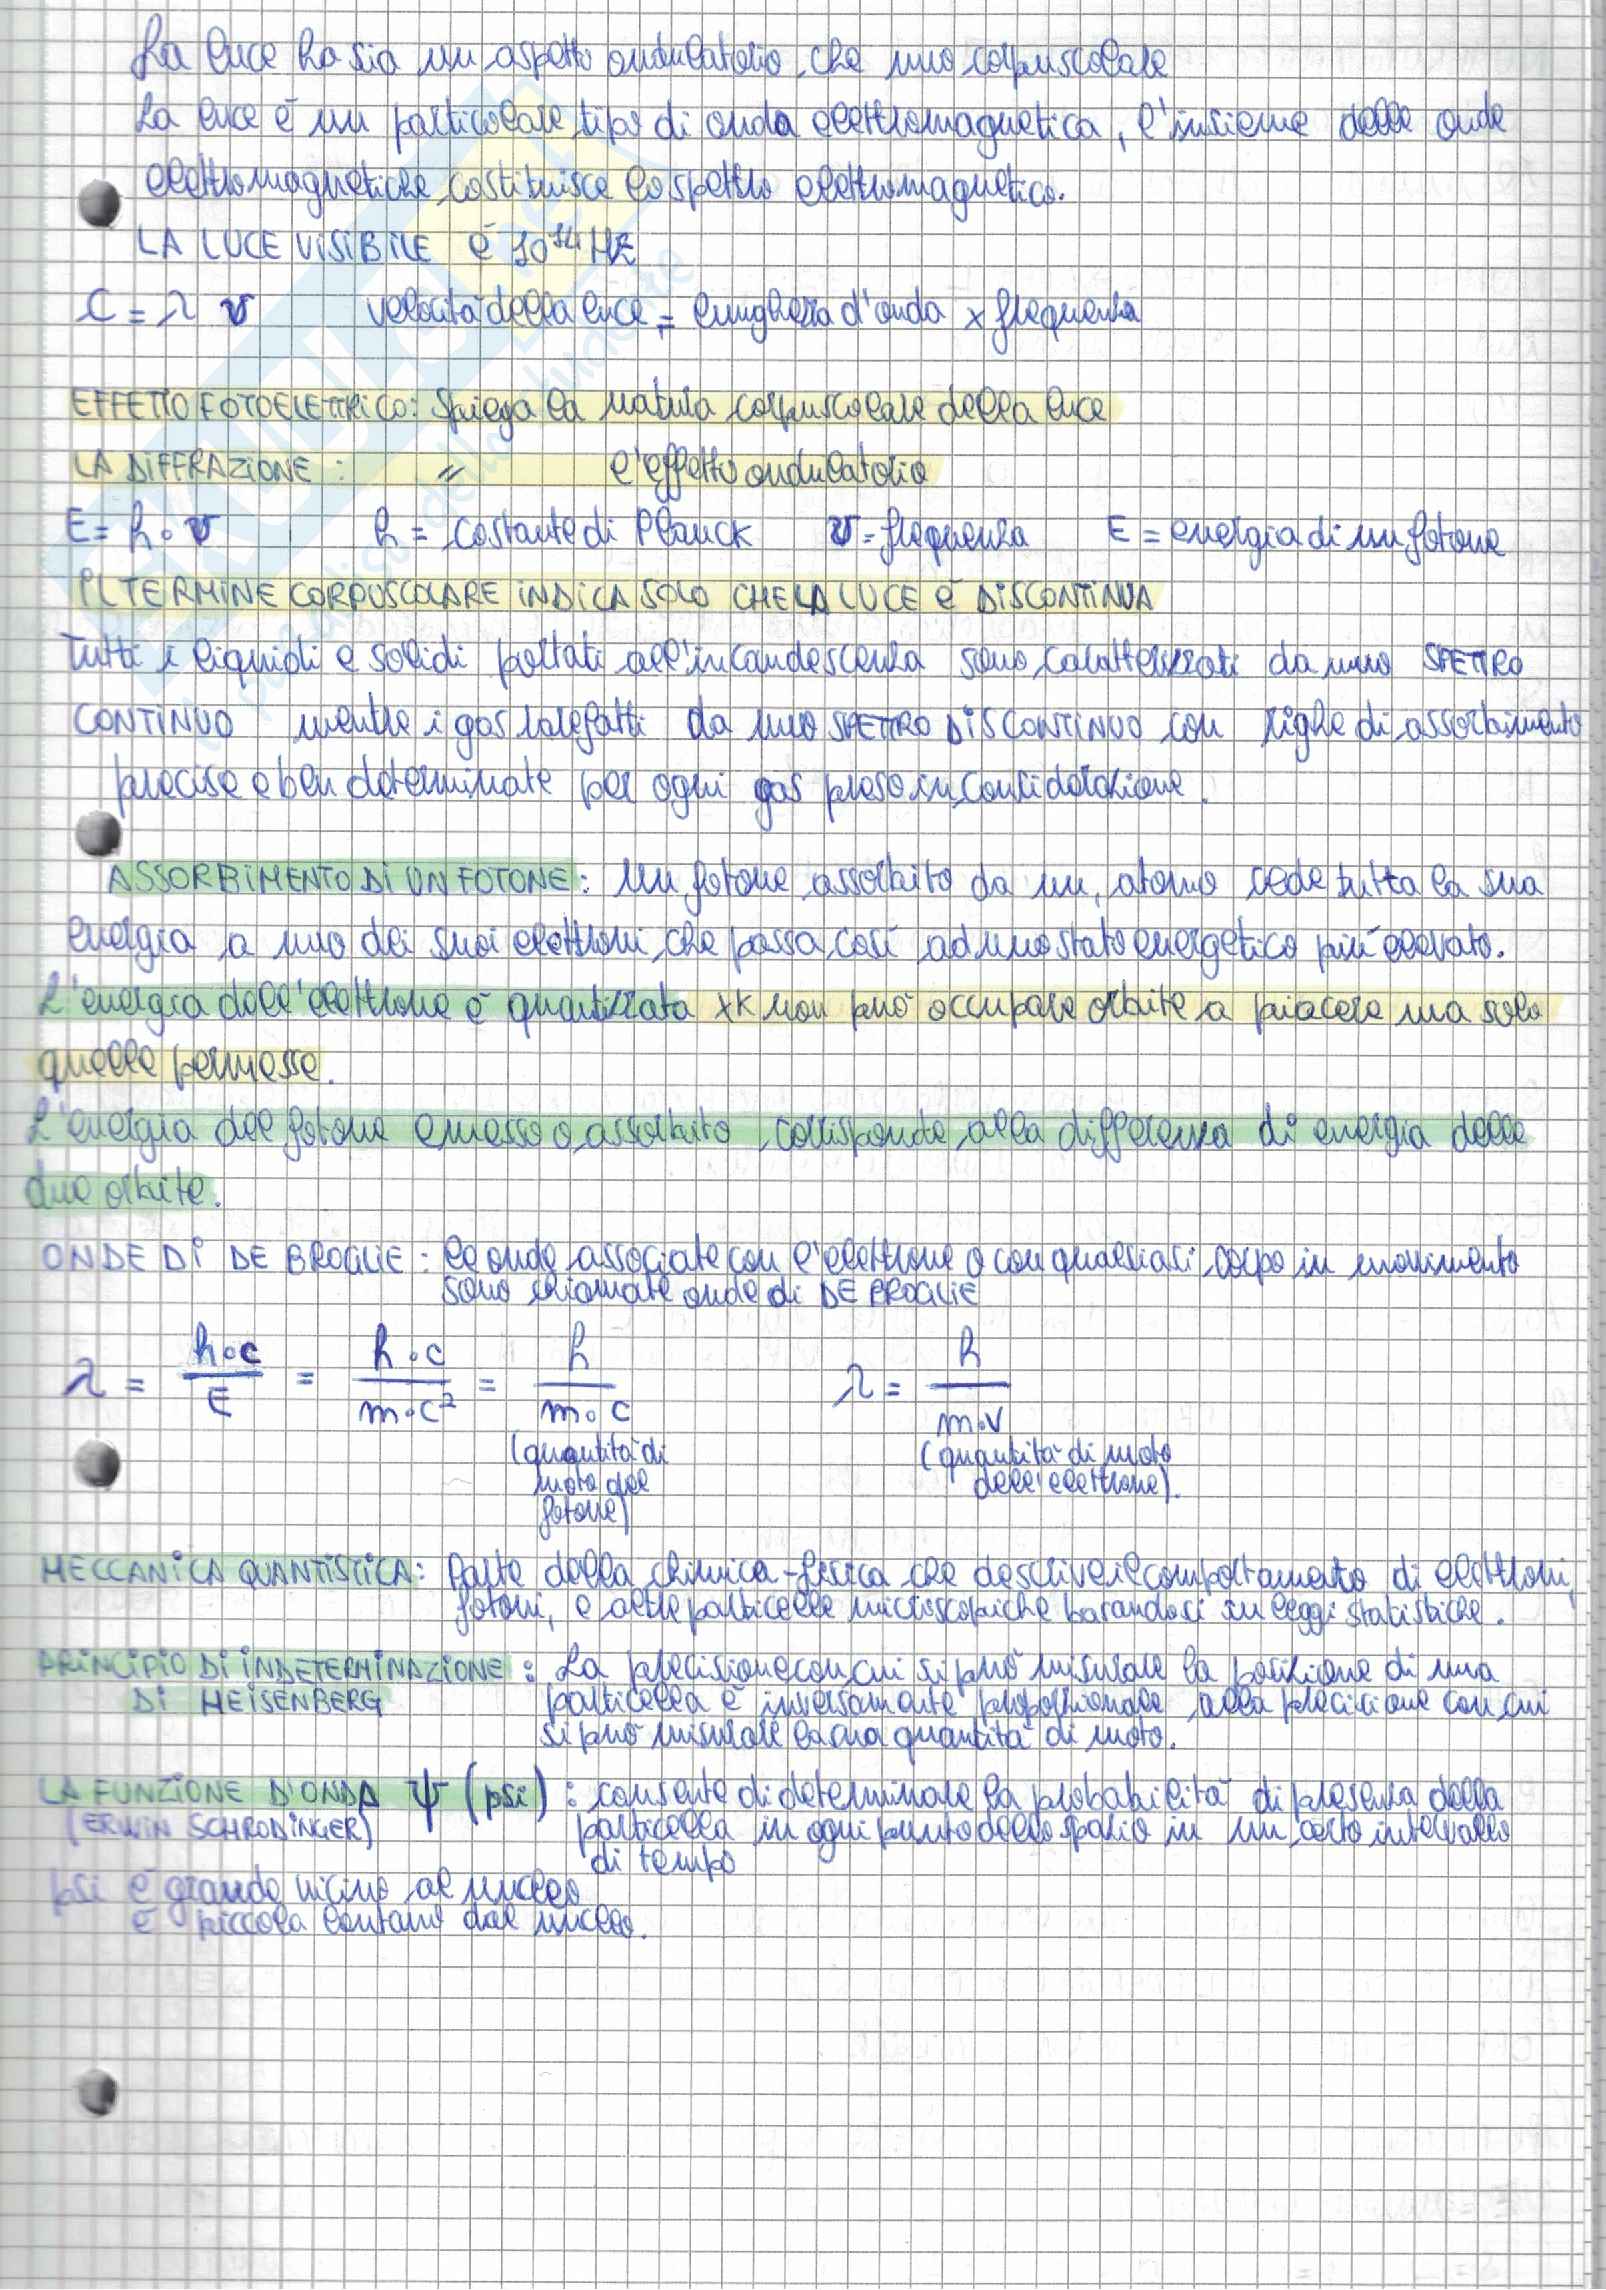 La luce ha sia un aspetto ondulatorio che uno corpuscolare
La luce è un particolare tipo di onda elettromagnetica, l'insieme delle onde
elettromagnetiche costituisce lo spettro elettromagnetico.
LA LUCE VISIBILE è 10¹⁴ HZ
C = λ ν velocità della luce = lunghezza d'onda x frequenza
EFFETTO FOTOELETTRICO: spiega la natura corpuscolare della luce
LA DIFFRAZIONE: " l'effetto ondulatorio
E = h • ν h = costante di Planck ν = frequenza E = energia di un fotone
IL TERMINE CORPUSCOLARE INDICA SOLO CHE LA LUCE è DISCONTINUA
Tutti i liquidi e solidi portati all'incandescenza sono caratterizzati da uno SPETTRO
CONTINUO mentre i gas rarefatti da uno SPETTRO DISCONTINUO con righe di assorbimento
precise e ben determinate per ogni gas preso in considerazione.
ASSORBIMENTO DI UN FOTONE: un fotone assorbito da un atomo cede tutta la sua
energia a uno dei suoi elettroni, che passa così ad uno stato energetico più elevato.
L'energia dell'elettrone è quantizzata xk non può occupare orbite a piacere ma solo
quelle permesse.
L'energia del fotone emesso o assorbito corrisponde alla differenza di energia delle
due orbite.
ONDE DI DE BROGLIE: le onde associate con l'elettrone o con qualsiasi corpo in movimento
sono chiamate onde di DE BROGLIE
λ = h•c / E = h•c / m•c² = h / m•c λ = h / m•v
(quantità di moto del fotone) (quantità di moto dell'elettrone).
MECCANICA QUANTISTICA: Parte della chimica-fisica che descrive il comportamento di elettroni,
fotoni, e altre particelle microscopiche basandosi su leggi statistiche.
PRINCIPIO DI INDETERMINAZIONE: La precisione con cui si può misurare la posizione di una
DI HEISENBERG particella è inversamente proporzionale alla precisione con cui
si può misurare la sua quantità di moto.
LA FUNZIONE D'ONDA ψ (psi): consente di determinare la probabilità di presenza della
(ERWIN SCHRODINGER) particella in ogni punto dello spazio in un certo intervallo
di tempo
psi è grande vicino al nucleo
è piccola lontano dal nucleo.